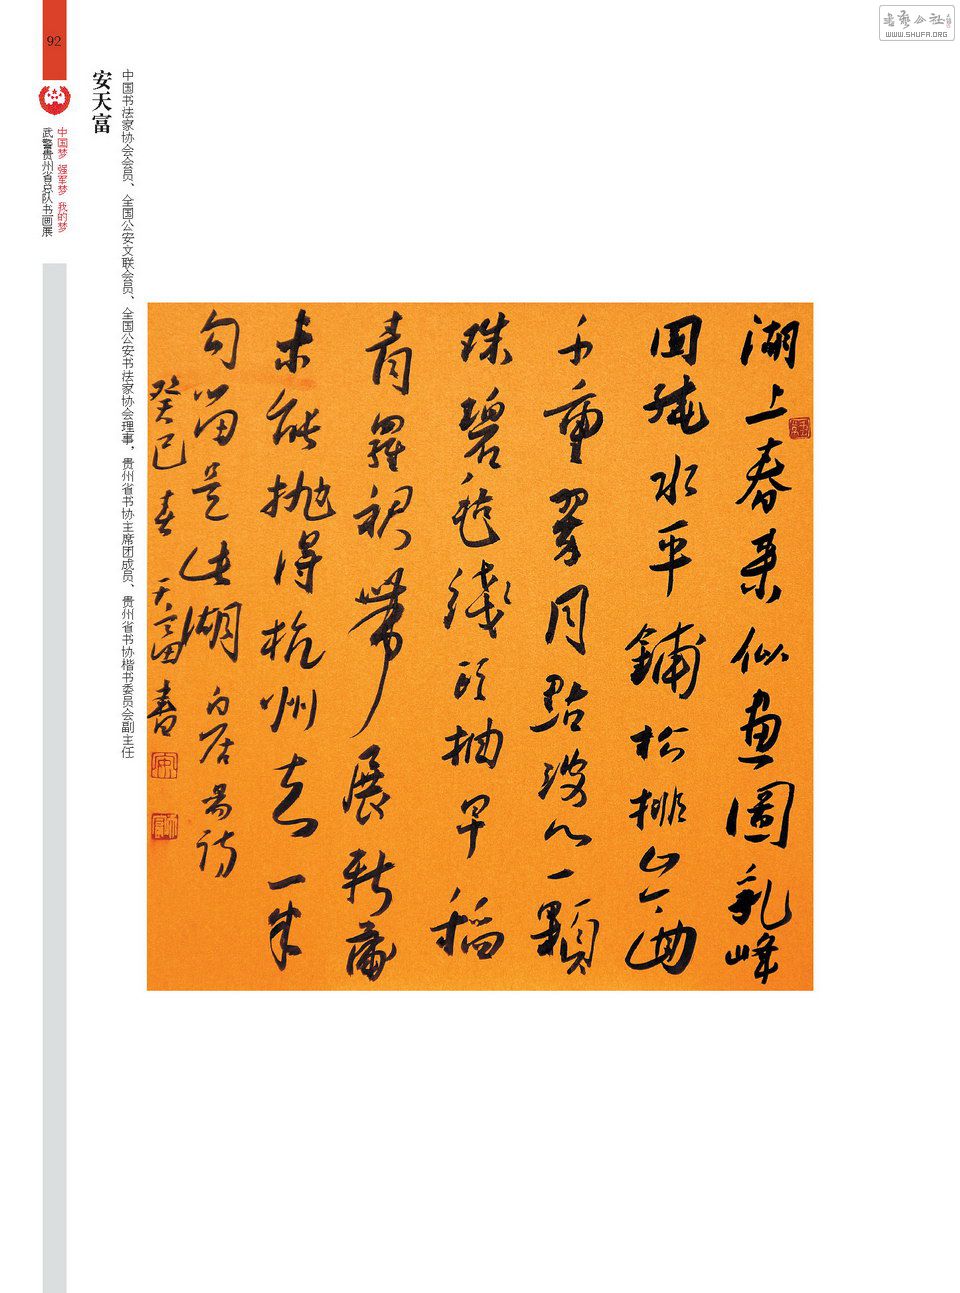 92
中国梦 强军梦 我的梦
武警贵州省总队书画展
安天富
中国书法家协会会员、全国公安文联会员、全国公安书法家协会理事，贵州省书协主席团成员、贵州省书协楷书委员会副主任
湖上春来似畫圖乱峰
围绕水平鋪松排山面
千重翠月點波心一顆
珠碧毯綫头抽早稻
青羅裙帶展新蒲
未能抛得杭州去一半
勾留是此湖 白居易诗
癸巳春 天富書
书艺公社
WWW.SHUFA.ORG